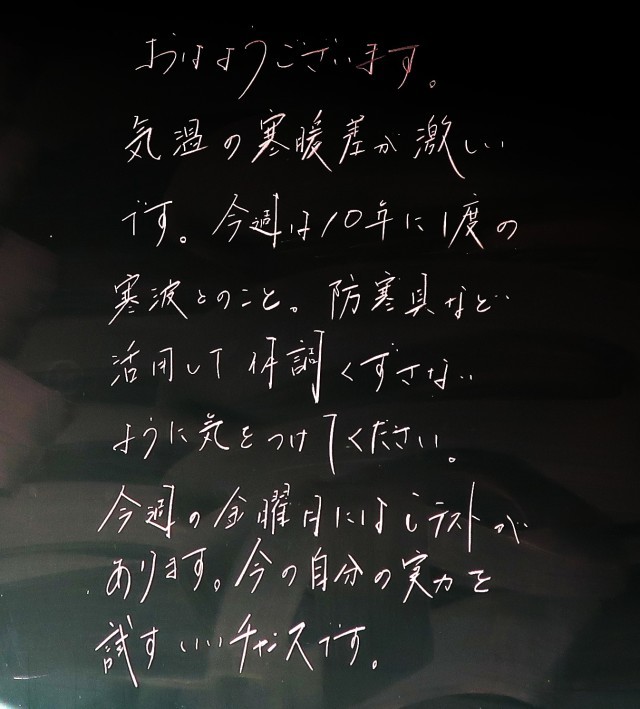 おはようございます。
気温の寒暖差が激しい
です。今週は10年に1度の
寒波とのこと。防寒具など
活用して体調くずさない
ように気をつけてください。
今週の金曜日にはiテストが
あります。今の自分の実力を
試すいいチャンスです。